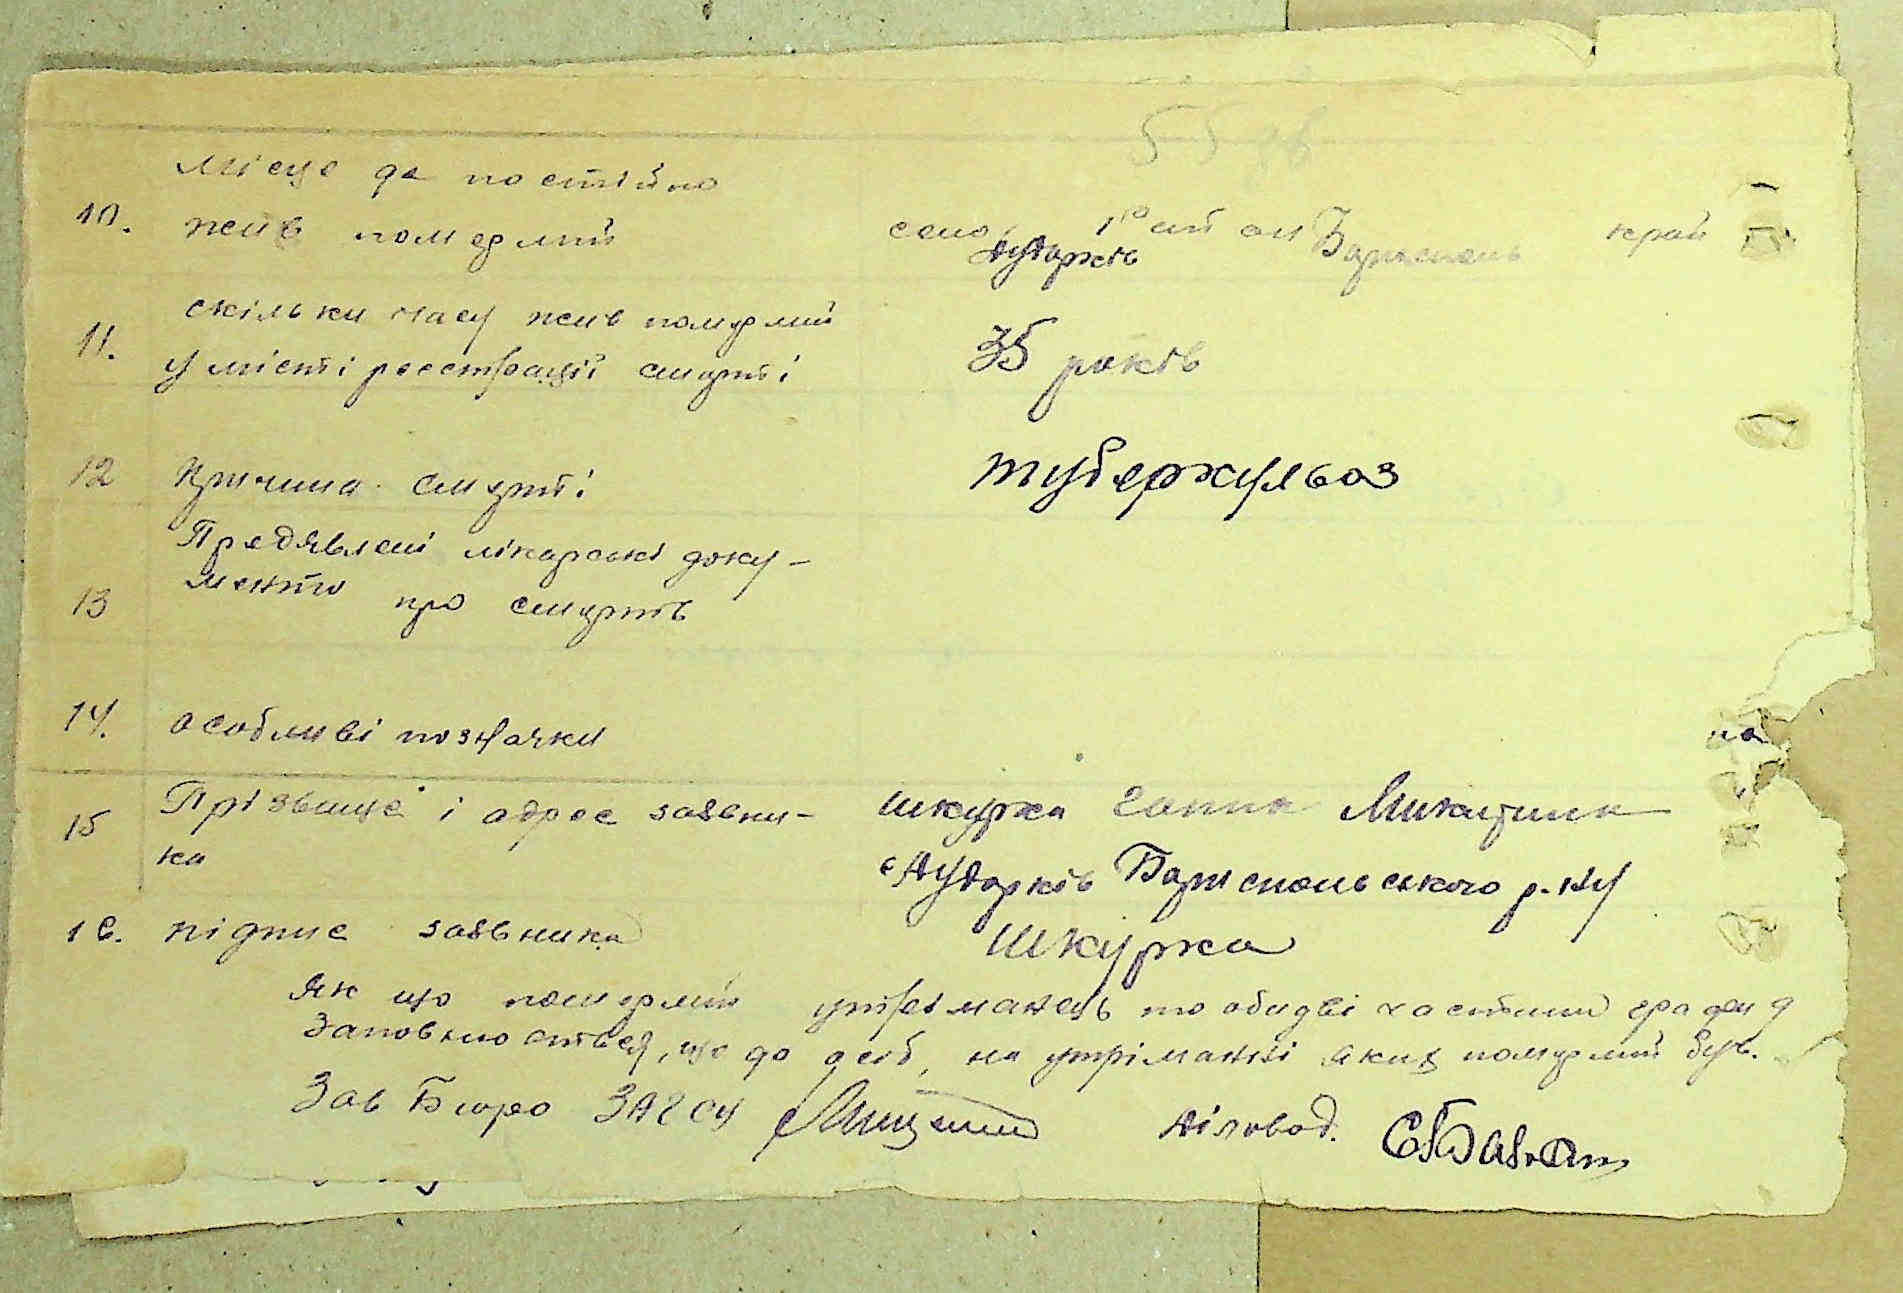 55 зв
місце де постійно
10. жив померлий село Дударків район Бориспіль край
11. скільки часу жив померлий
у місті реєстрації смерті 35 років
12 Причина смерті туберкульоз
Предявлені лікарські доку-
13 менти про смерть
14. особливі позначки
15 Прізвище і адрес заявни- Шкурка Ганна Микитина
ка с Дударків Бориспольського р-ну
16. підпис заявника Шкурка
Як що померлий утриманець то обидві частини графи 9
Заповнюються, що до осіб, на утріманні яких помер лий був.
Зав Бюро ЗАГСу Діловод.